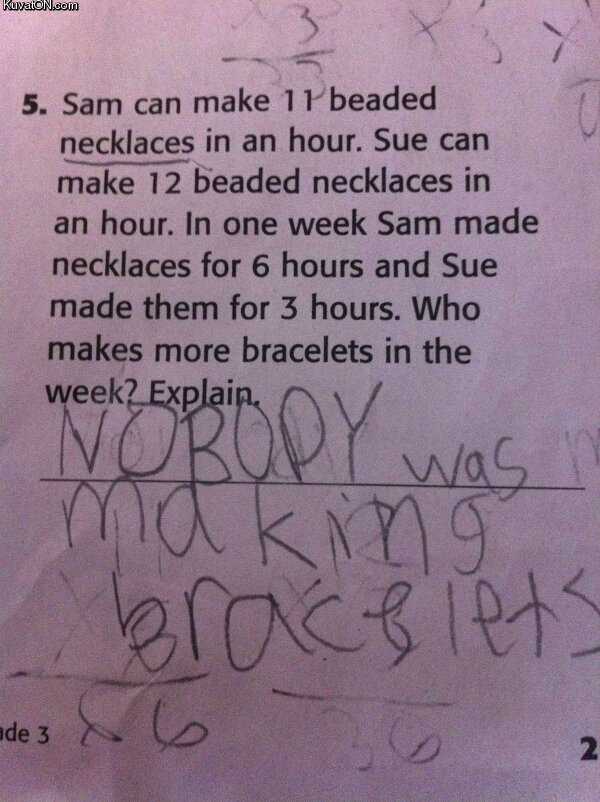 KuvatON.com
3
3
5. Sam can make 11 beaded
necklaces in an hour. Sue can
make 12 beaded necklaces in
an hour. In one week Sam made
necklaces for 6 hours and Sue
made them for 3 hours. Who
makes more bracelets in the
week? Explain.
NOBODY was
making
bracelets
x 6
36
ade 3
2